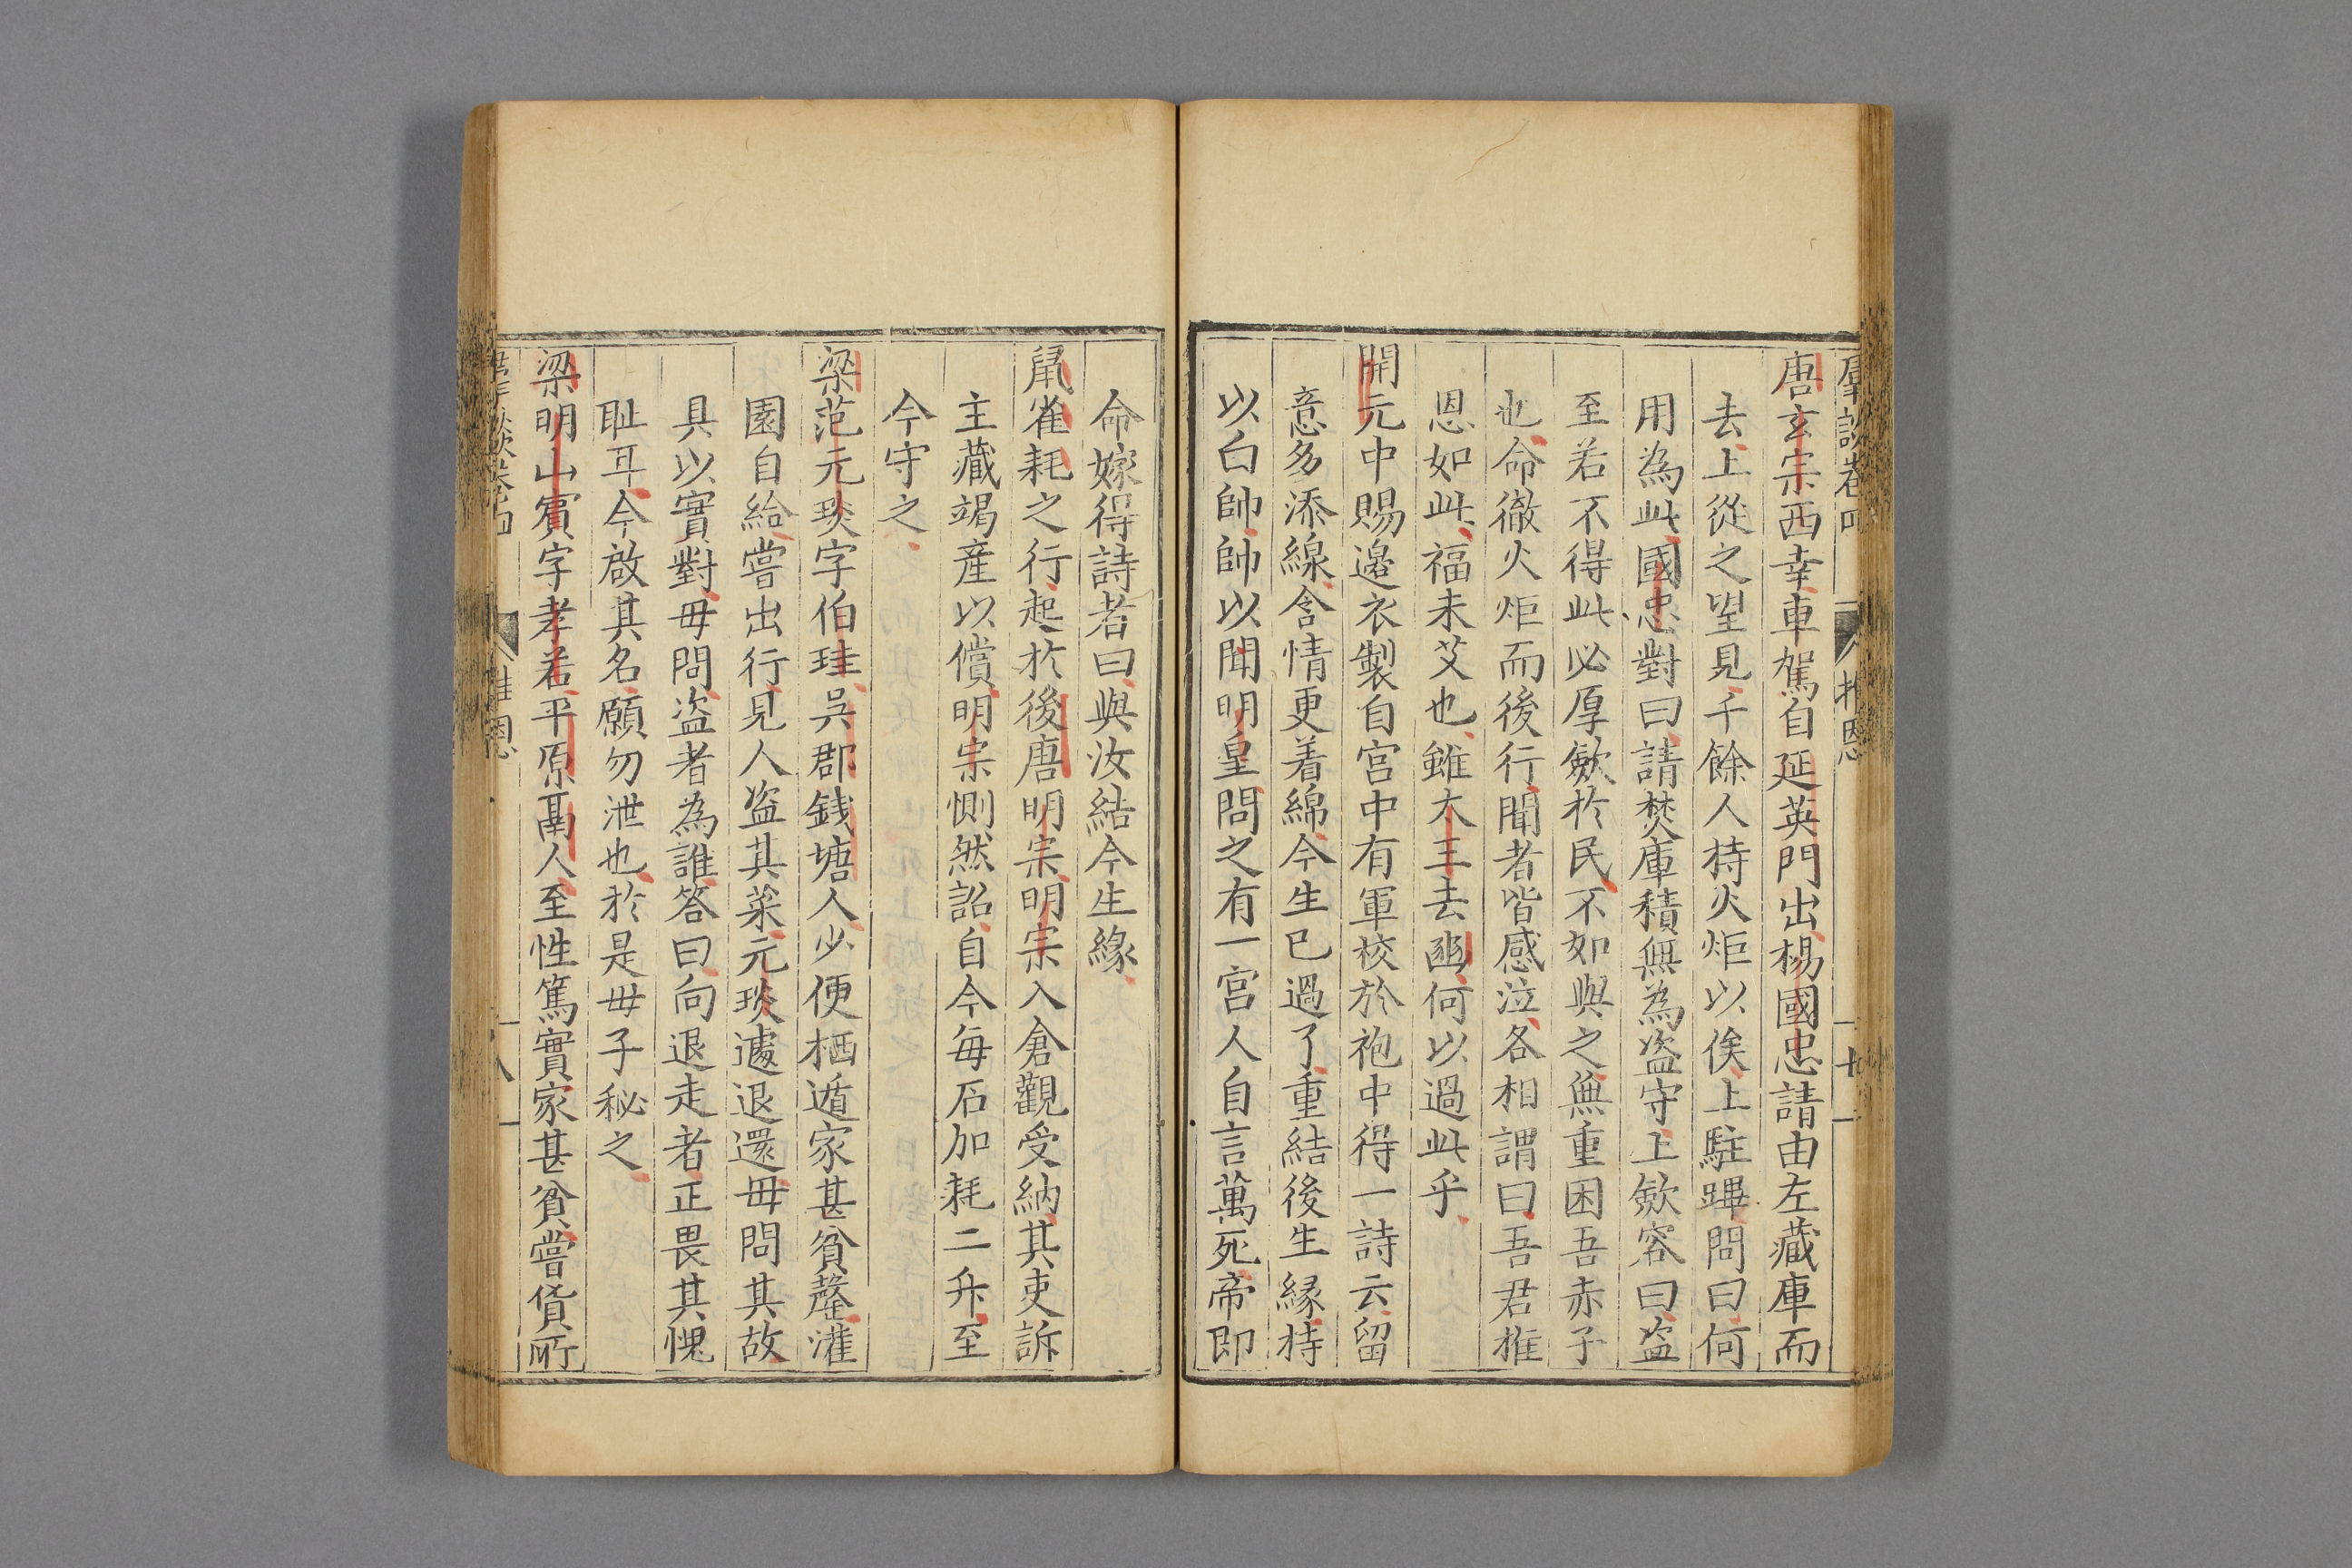 唐玄宗西幸車駕自延英門出楊國忠請由左藏庫而
去上從之望見千餘人持火炬以俟上駐蹕問曰何
用為此國忠對曰請焚庫積無為盗守上歛容曰盗
至若不得此必厚歛於民不如與之無重困吾赤子
也命徹火炬而後行聞者皆感泣各相謂曰吾君推
恩如此福未艾也雖大王去豳何以過此乎
開元中賜邉衣製自宫中有軍校於袍中得一詩云留
意多添線含情更着綿今生已過了重結後生緣持
以白帥帥以聞明皇問之有一宫人自言萬死帝即
命嫁得詩者曰與汝結今生緣
鼠雀耗之行起於後唐明宗明宗入倉觀受納其吏訴
主藏竭産以償明宗惻然詔自今每石加耗二升至
今守之
梁范元琰字伯珪吳郡錢塘人少便栖遁家甚貧罄灌
園自給嘗出行見人盗其菜元琰遽退還母問其故
具以實對母問盗者為誰答曰向退走者正畏其愧
耻耳今啟其名願勿泄也於是母子秘之
梁明山賓字孝若平原鬲人至性篤實家甚貧嘗貨所